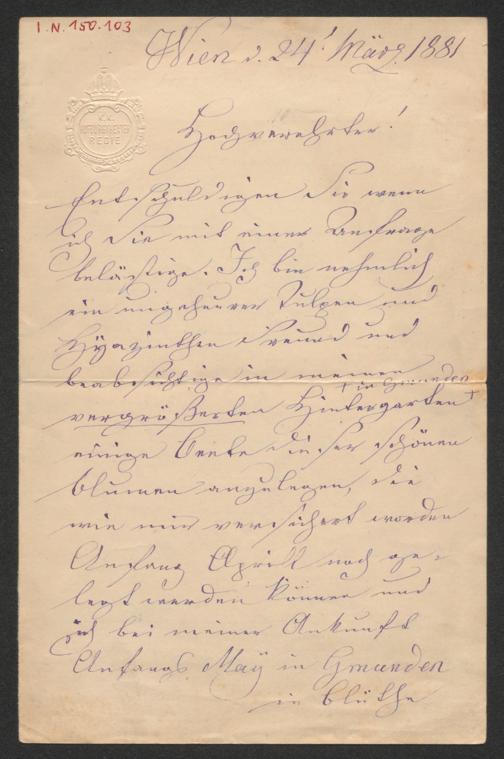 I.N. 150.103
Wien d. 24! März 1881
K.K.
REGIE
Hochverehrter!
Entschuldigen Sie wenn
ich Sie mit einer Anfrage
belästige. Ich bin nehmlich
ein ungeheurer Tulpen und
Hyazinthen Freund und
beabsichtige in meinem
+ in Gmunden
vergrößerten Hintergarten +
einige Beete dieser schönen
Blumen anzulegen, die
wie mir versichert worden
Anfang Aprill noch ge-
legt werden können und
ich bei meiner Ankunft
Anfangs Maÿ in Gmunden
in Blüthe